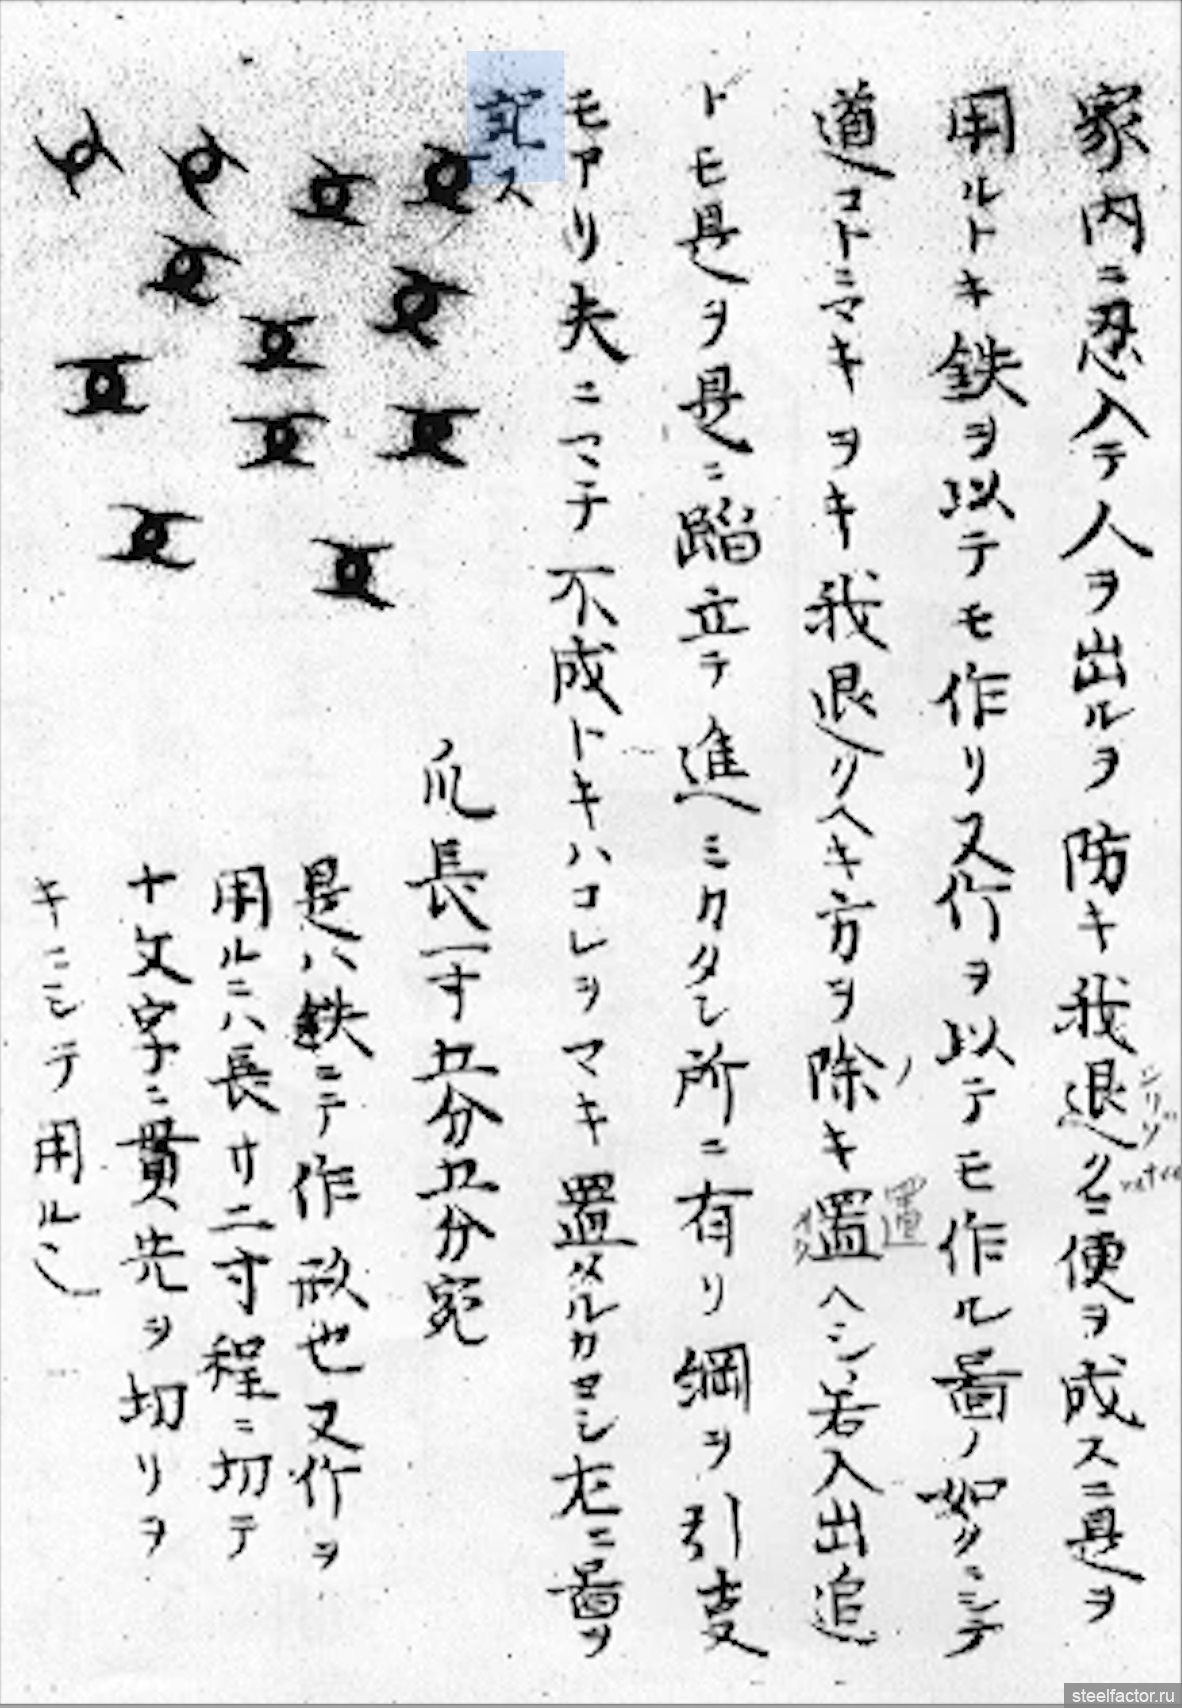 家内ニ忍入テ人ヲ出ルヲ防キ我退クニ便ヲ成スニ是ヲ
シリゾ
用ルトキ鉄ヲ以テモ作リ又竹ヲ以テモ作ル圖ノ如クニシテ
道コトニマキヲキ我退リヘキ方ヲ除キ置ヘシ若入出追
ノ
置
オク
トモ是ヲ是ニ蹈立テ進ミカタシ所ニ有リ綱ヲ引支
モアリ夫ニマテ不成トキハコレヲマキ置メルカヨシ左ニ圖ヲ
記ス
爪長一寸五分五分宛
是ハ鉄ニテ作ル也又竹ヲ
用ルニハ長サ二寸程ニ切テ
十文字ニ貫先ヲ切リヲ
キニシテ用ル
steelfactor.ru